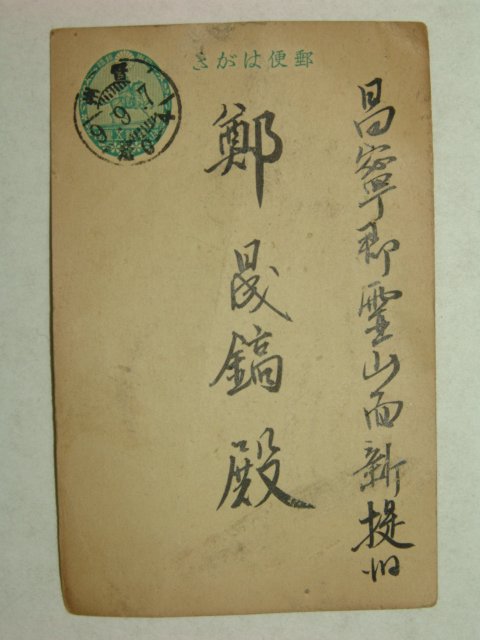 郵便はがき
昌寧郡靈山面新提
鄭晟鎬殿
9.9.7